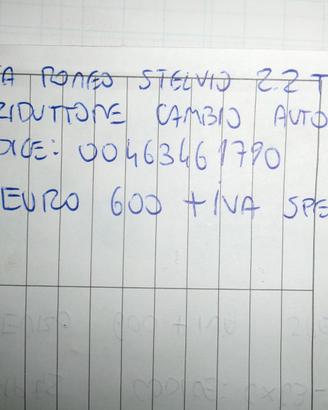 A ROMEO STELVIO 2.2 T
RIDUTTORE CAMBIO AUTO
DICE: 00463461790
EURO 600 + IVA SPE